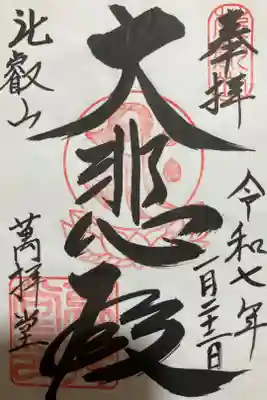 奉拝
令和七年
一月二十二日
大悲殿
比叡山
萬拝堂